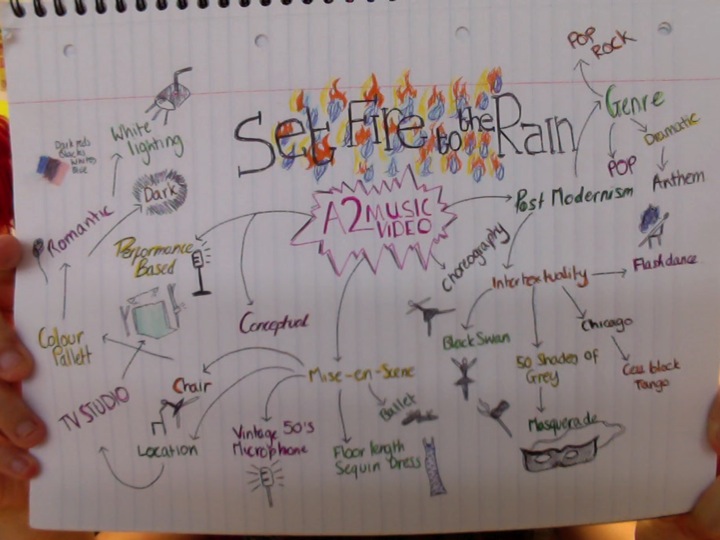 Set Fire to the Rain
A2 MUSIC
VIDEO
POP
ROCK
Genre
Dramatic
POP
Anthem
Post Modernism
Intertextuality
Flashdance
Chicago
Cell block
Tango
50 Shades of
Grey
Masquerade
Black Swan
Choreography
Dark reds
Blacks
Whites
Blue
White
lighting
Dark
Romantic
Performance
Based
Conceptual
Colour
Pallett
Mise-en-Scene
Chair
TV STUDIO
Location
Vintage 50's
Microphone
Floor length
Sequin Dress
Ballet